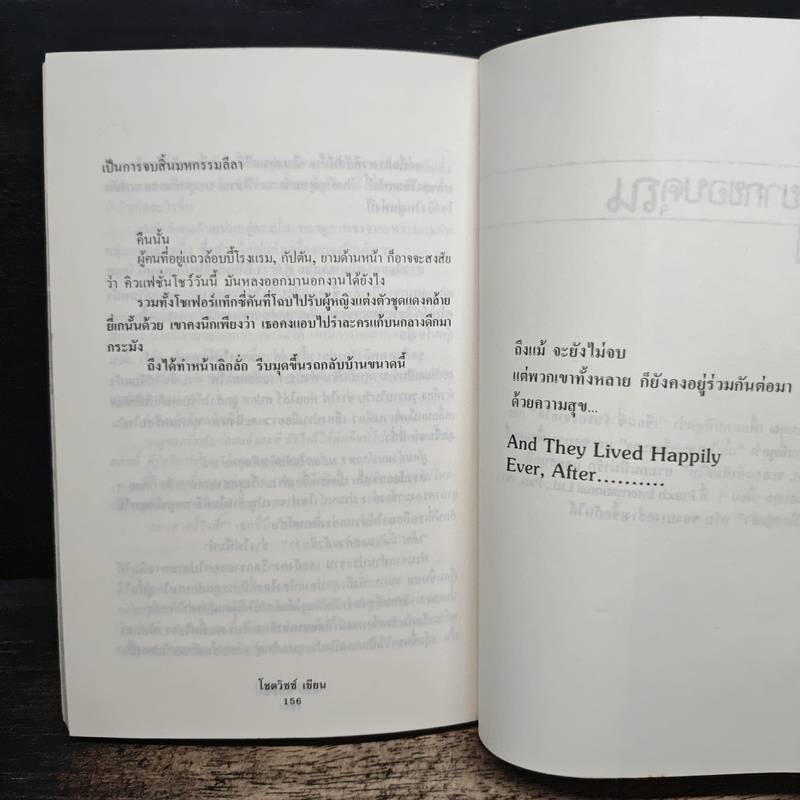 เป็นการจบสิ้นมหกรรมลีลา
คืนนั้น
ผู้คนที่อยู่แถวล้อบบี้โรงแรม, กัปตัน, ยามด้านหน้า ก็อาจจะสงสัย
ว่า คิวแฟชั่นโชว์วันนี้ มันหลงออกมานอกงานได้ยังไง
รวมทั้งโชเฟอร์แท็กซี่คันที่โฉบไปรับผู้หญิงแต่งตัวชุดแดงคล้าย
ยี่เกนั้นด้วย เขาคงนึกเพียงว่า เธอคงแอบไปรำละครแก้บนกลางดึกมา
กระมัง
ถึงได้ทำหน้าเลิกลั่ก รีบมุดขึ้นรถกลับบ้านขนาดนี้
โชติวิชช์ เขียน
156
ถึงแม้ จะยังไม่จบ
แต่พวกเขาทั้งหลาย ก็ยังคงอยู่ร่วมกันต่อมา
ด้วยความสุข...
And They Lived Happily
Ever, After..........